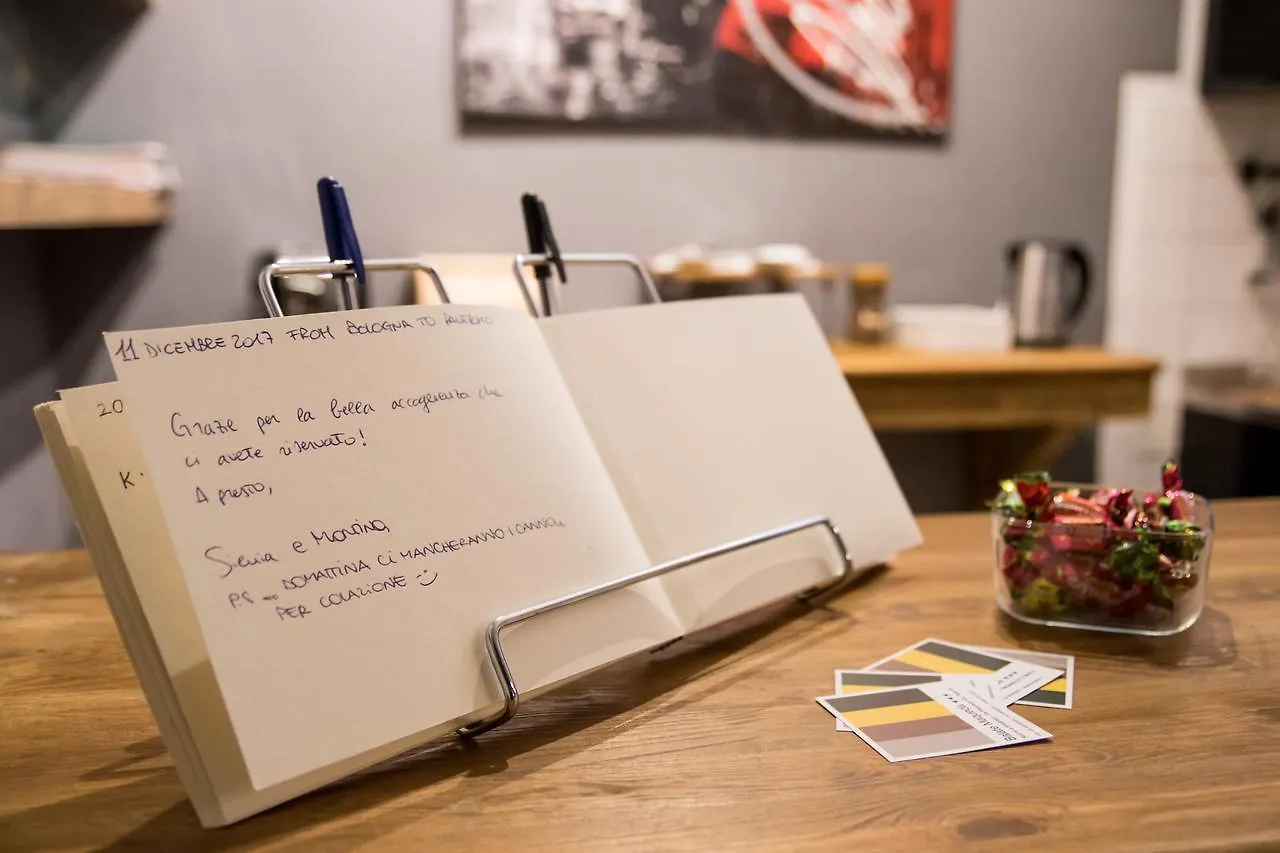 11 DICEMBRE 2017 FROM BOLOGNA TO PALERMO
Grazie per la bella accoglienza che
ci avete riservato!
A presto,
Silvia e Monica
P.S ... DOMATTINA CI MANCHERANNO I CANNOLI
PER COLAZIONE
20
K.